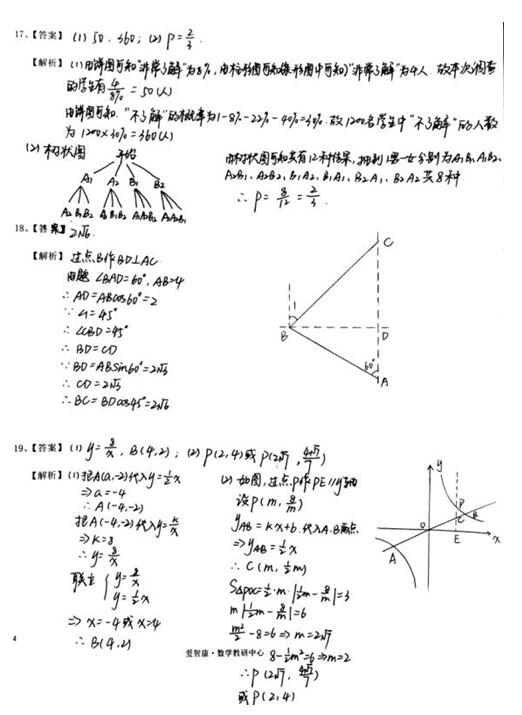 17、【答案】 (1) 50, 360; (2) P=2/3.
【解析】 (1) 由饼图可知"非常了解"为8%, 由柱形图可知(条形图中可知)"非常了解"为4人. 故本次调查
的学生有 4/8% = 50(人)
由饼图可知. "不了解"的概率为1-8%-22%-40%=30%. 故1200名学生中"不了解"的人数
为 1200×30%=360(人)
(2) 树状图
开始
A1 A2 B1 B2
A2B1B2 A1B1B2 A1A2B2 A1A2B1
由树状图可知共有12种结果, 抽到1男一女分别为A1B1、A1B2、
A2B1、A2B2、B1A1、B1A2、B2A1、B2A2 共8种
∴ P= 8/12 = 2/3.
18、【答案】 2√6.
【解析】 过点B作BD⊥AC
由题 ∠BAD=60°, AB=4
∴ AD=ABcos60°=2
∵ ∠1=45°
∴ ∠CBD=45°
∴ BD=CD
∵ BD=ABsin60°=2√3
∴ CD=2√3
∴ BC=BDcos45°=2√6
C
1
B
D
60°
A
19、【答案】 (1) y=8/x, B(4,2); (2) P(2,4)或P(2√7, 4√7/7)
【解析】 (1) 把A(a,-2)代入y=½x
⇒ a=-4
∴ A(-4,-2)
把A(-4,-2)代入y=k/x
⇒ k=8
∴ y=8/x
联立 { y=8/x
y=½x
⇒ x=-4或x=4
∴ B(4,2)
(2) 如图, 过点P作PE//y轴
设P(m, 8/m)
yAB=kx+b. 代入A、B两点
⇒ yAB=½x
∴ C(m, ½m)
S△POC=½·m·|½m-8/m|=3
m|½m-8/m|=6
m²/2-8=6 ⇒ m=2√7
8-½m²=6 ⇒ m=2
∴ P(2√7, 4√7/7)
或P(2,4)
y
P
C
B
O
E
x
A
4
爱智康·数学教研中心